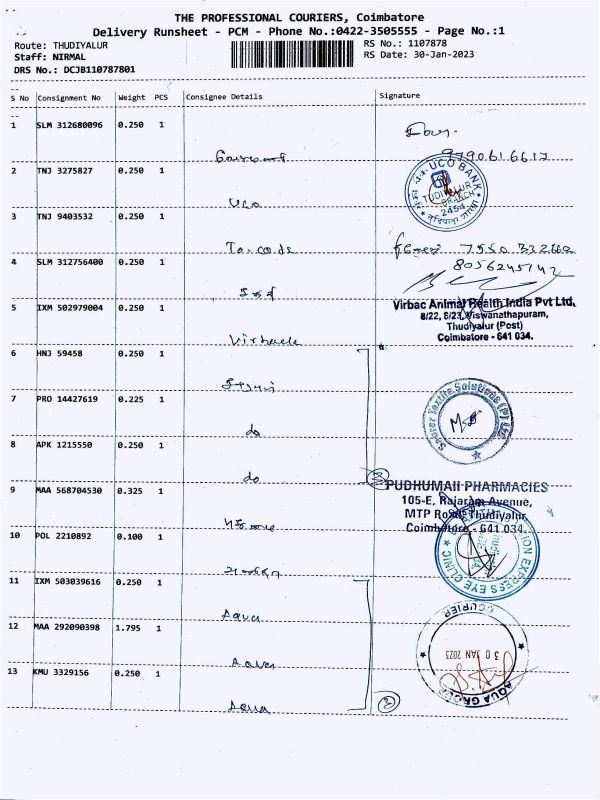 THE PROFESSIONAL COURIERS, Coimbatore
Delivery Runsheet - PCM - Phone No.:0422-3505555 - Page No.:1
Route: THUDIYALUR
RS No.: 1107878
Staff: NIRMAL
RS Date: 30-Jan-2023
DRS No.: DCJB110787801
S No Consignment No Weight PCS Consignee Details Signature
1 SLM 312680096 0.250 1
9790616617
2 TNJ 3275827 0.250 1
UCO
UCO BANK
TUDIYALUR
BRANCH
2454
3 TNJ 9403532 0.250 1
8056245142
4 SLM 312756400 0.250 1
5 IXM 502979004 0.250 1
Virback
Virbac Animal Health India Pvt Ltd,
8/22, 8/23, Viswanathapuram,
Thudiyalur (Post)
Coimbatore - 641 034.
6 HNJ 59458 0.250 1
7 PRO 14427619 0.225 1
do
Textile Solutions (P) Ltd
8 APK 1215550 0.250 1
do
3
9 MAA 568704530 0.325 1
PUDHUMAII PHARMACIES
105-E, Rajaram Avenue,
MTP Road, Thudiyalur,
Coimbatore - 641 034.
10 POL 2210892 0.100 1
EXPRESS EYE CLINIC
11 IXM 503039616 0.250 1
Aqua
12 MAA 292090398 1.795 1
Aqua
COURIER
30 JAN 2023
AQUA GROUP
13 KMU 3329156 0.250 1
Aqua
3